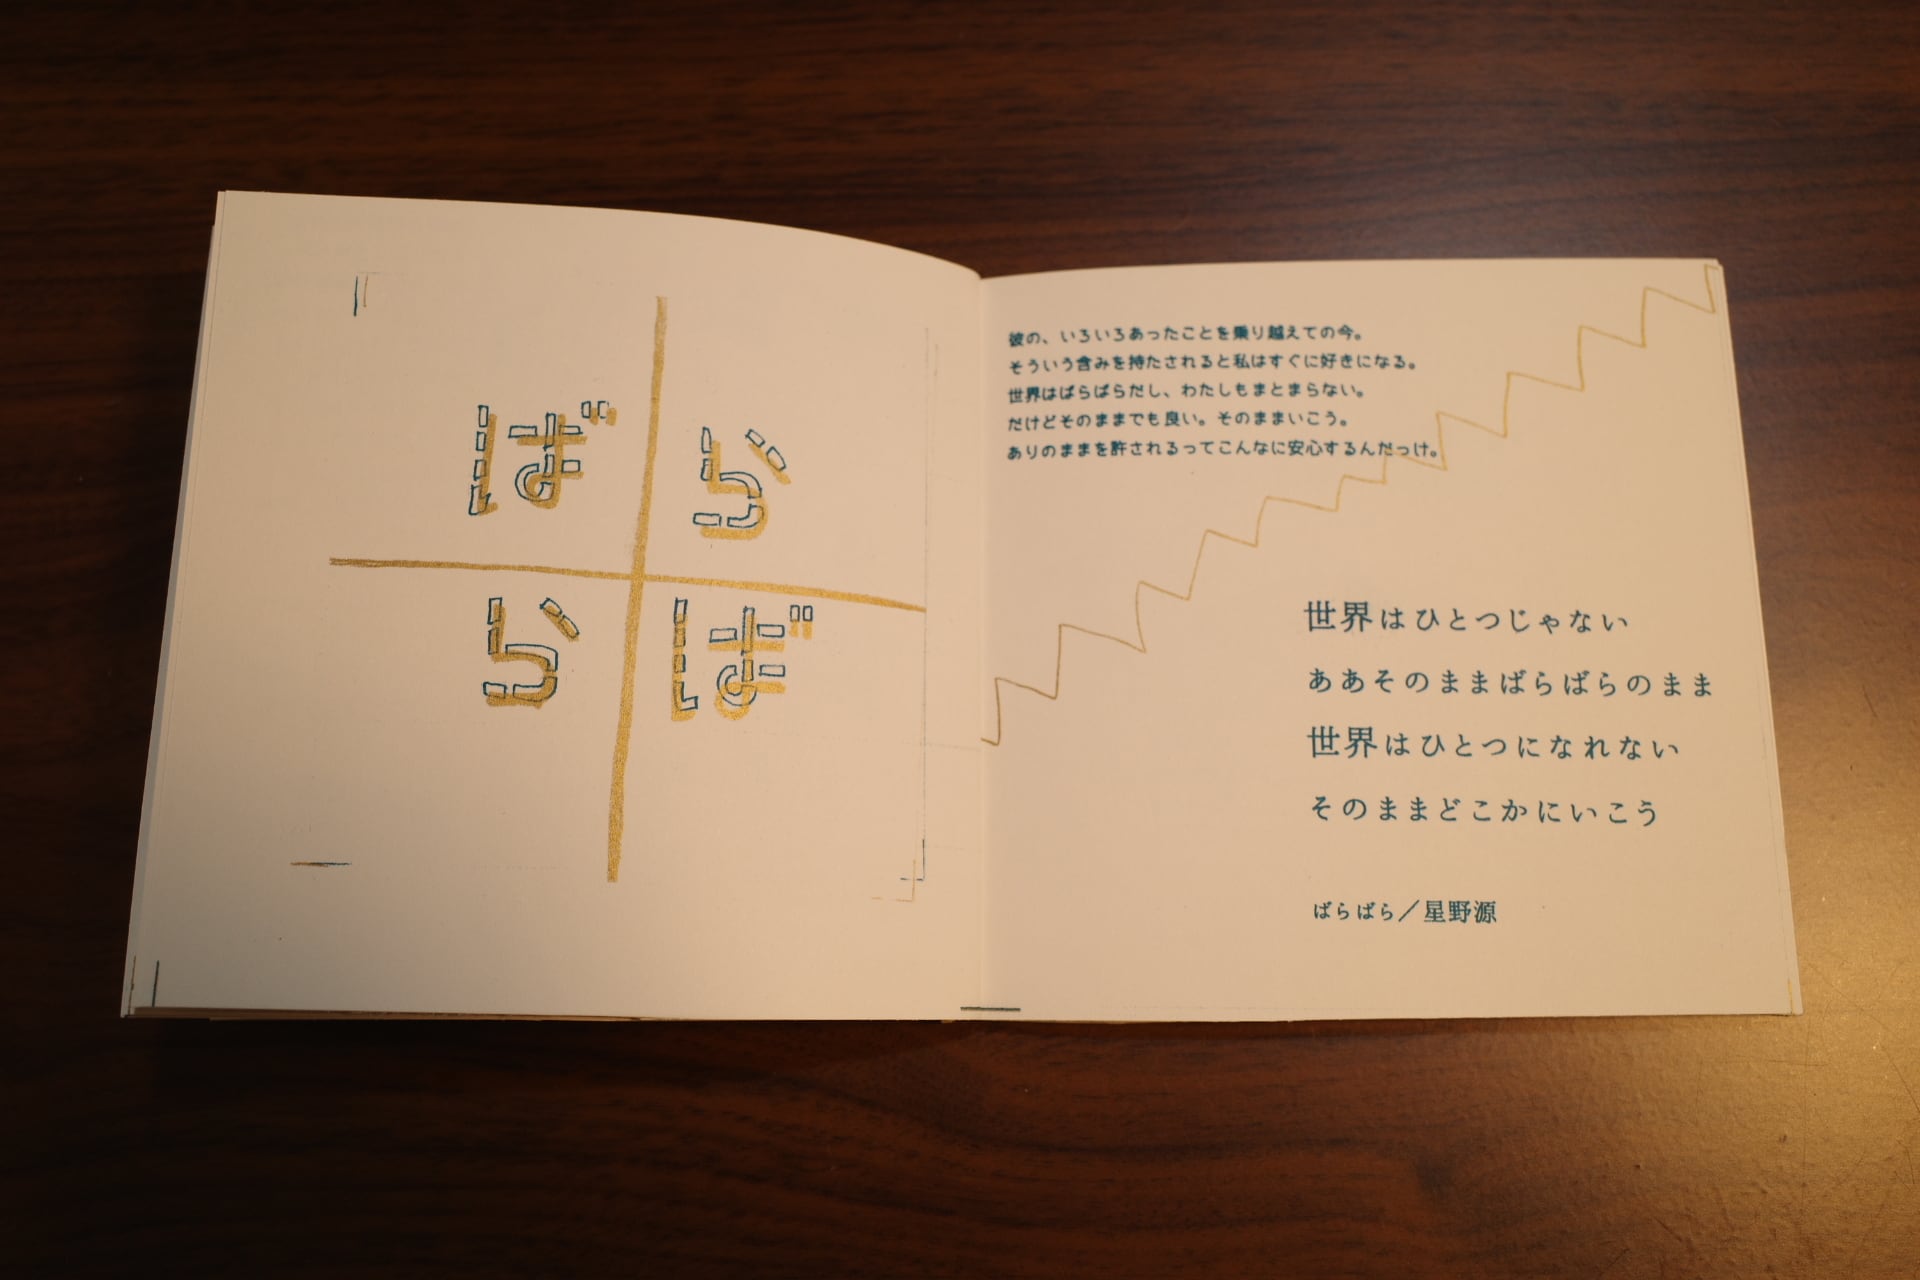 ばら
らば
彼の、いろいろあったことを乗り越えての今。
そういう含みを持たされると私はすぐに好きになる。
世界はばらばらだし、わたしもまとまらない。
だけどそのままでも良い。そのままいこう。
ありのままを許されるってこんなに安心するんだっけ。
世界はひとつじゃない
ああそのままばらばらのまま
世界はひとつになれない
そのままどこかにいこう
ばらばら／星野源